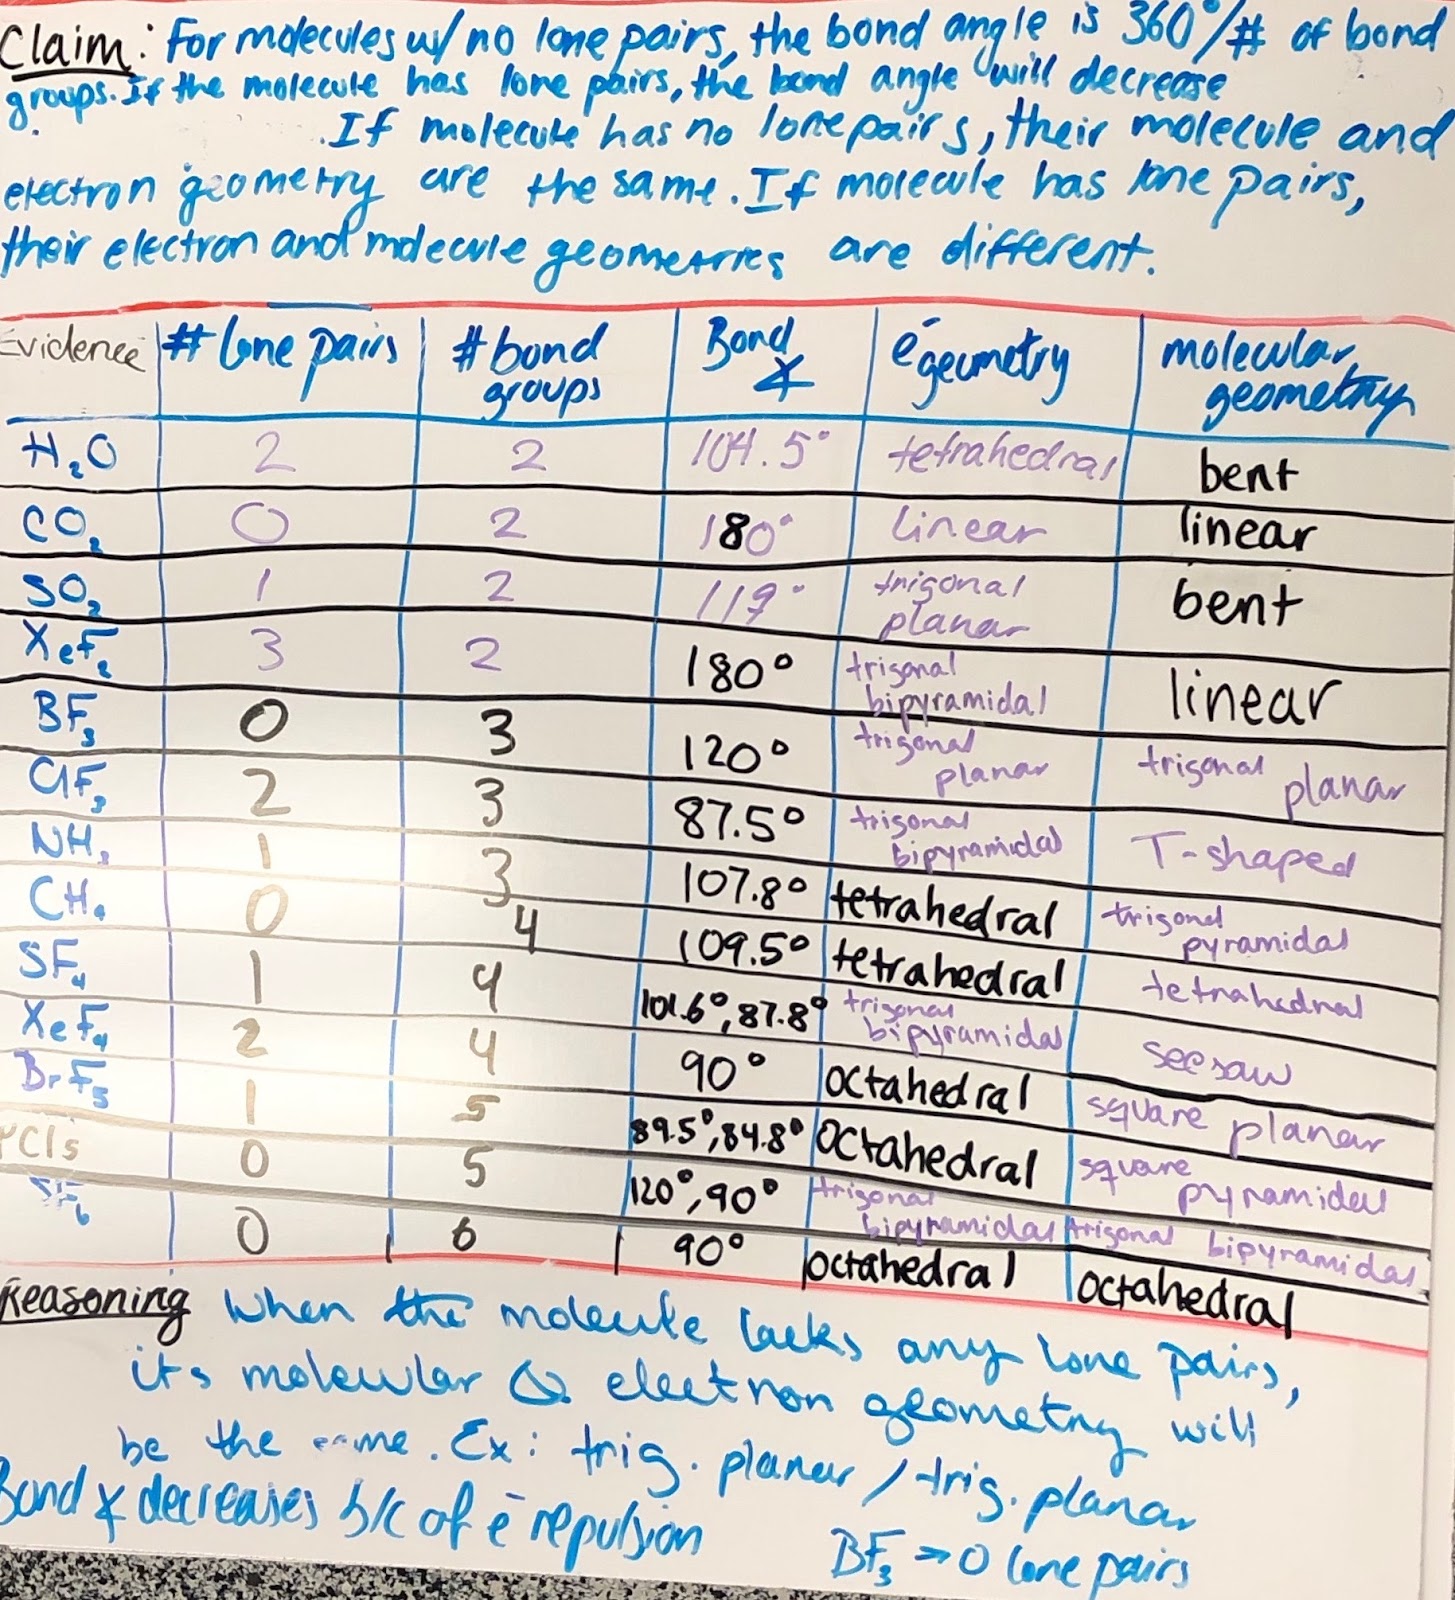 Claim: For molecules w/ no lone pairs, the bond angle is 360°/# of bond
groups. If the molecule has lone pairs, the bond angle will decrease
If molecule has no lone pairs, their molecule and
electron geometry are the same. If molecule has lone pairs,
their electron and molecule geometries are different.
Evidence # lone pairs # bond groups Bond ∡ e⁻ geometry molecular geometry
H₂O 2 2 104.5° tetrahedral bent
CO₂ 0 2 180° linear linear
SO₂ 1 2 119° trigonal planar bent
XeF₂ 3 2 180° trigonal bipyramidal linear
BF₃ 0 3 120° trigonal planar trigonal planar
ClF₃ 2 3 87.5° trigonal bipyramidal T-shaped
NH₃ 1 3 107.8° tetrahedral trigonal pyramidal
CH₄ 0 4 109.5° tetrahedral tetrahedral
SF₄ 1 4 101.6°, 87.8° trigonal bipyramidal seesaw
XeF₄ 2 4 90° octahedral square planar
BrF₅ 1 5 89.5°, 84.8° octahedral square pyramidal
PCl₅ 0 5 120°, 90° trigonal bipyramidal trigonal bipyramidal
SF₆ 0 6 90° octahedral octahedral
Reasoning When the molecule lacks any lone pairs,
its molecular & electron geometry will
be the same. Ex: trig. planar / trig. planar
Bond ∡ decreases b/c of e⁻ repulsion
BF₃ → 0 lone pairs